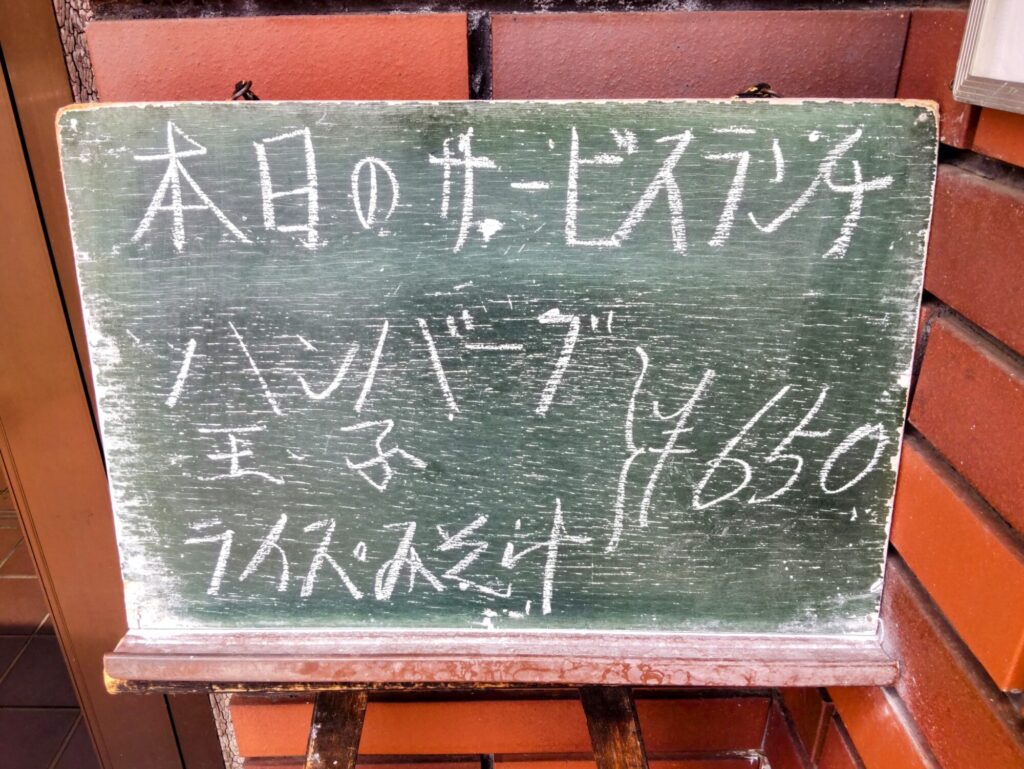 本日のサービスランチ
ハンバーグ
玉子
ライス・みそ汁
¥650